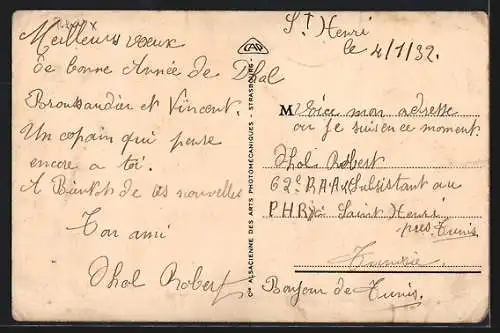 Meilleurs voeux
de bonne Année de Dhol
Broussaudier et Vincent.
Un copain qui pense
encore a toi.
A Bientot de tes nouvelles
Ton ami
Dhol Robert
CAP
Cie ALSACIENNE DES ARTS PHOTOMÉCANIQUES - STRASBOURG
St Henri
le 4/1/32.
M Voice mon adresse
ou je suis en ce moment
Dhol Robert
62e R.A.A Subsistant au
P.H.R Saint Henri
pres Tunis
Tunisie.
Bonjour de Tunis.